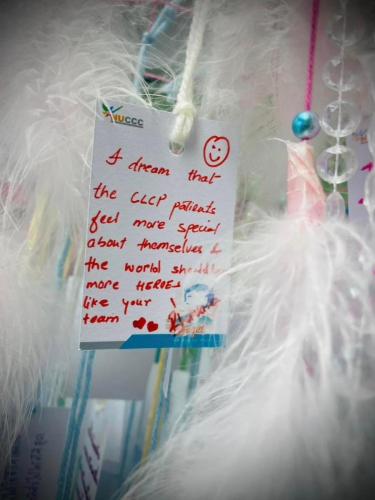 UCCC
I dream that
the CLCP patients
feel more special
about themselves &
the world should
more HEROES
like your !
team